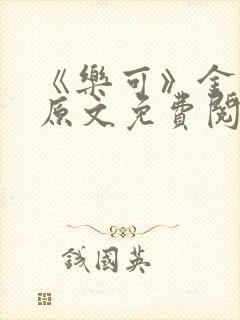 《樂可》金
原文免費閱
錢國英